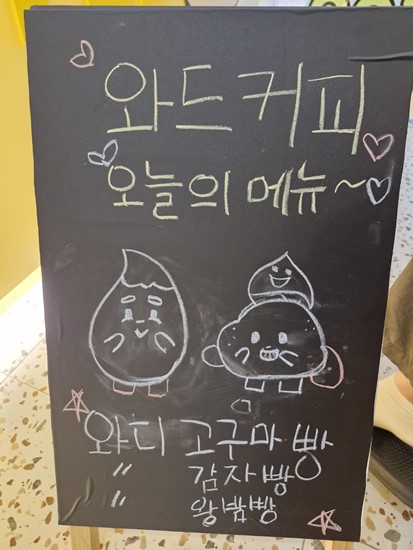 와드커피
오늘의 메뉴~
와디 고구마빵
〃 감자빵
〃 왕밤빵